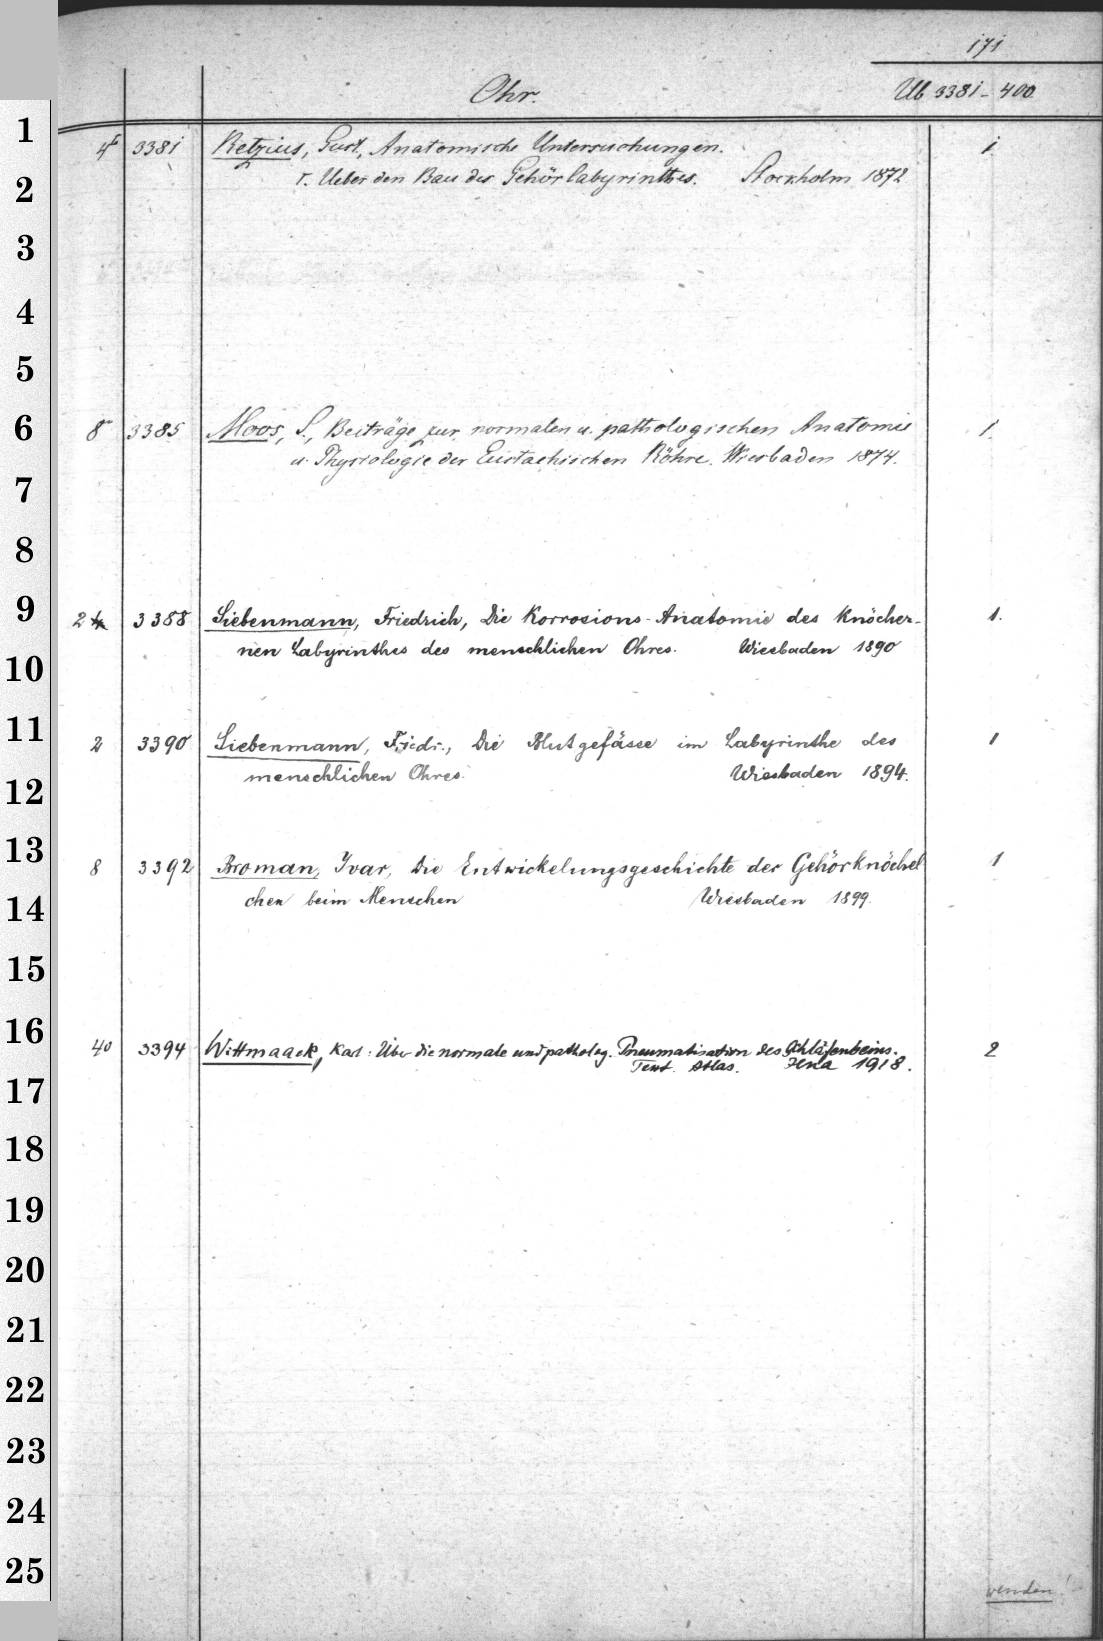 171
Ohr.
Ub 3381-400
1
4° 3381 Retzius, Gust., Anatomische Untersuchungen. 1.
2
I. Ueber den Bau des Gehörlabyrinthes. Stockholm 1872
3
4
5
6
8° 3385 Moos, S., Beiträge zur normalen u. pathologischen Anatomie 1.
u. Physiologie der Eustachischen Röhre. Wiesbaden 1874.
7
8
9
2 3388 Siebenmann, Friedrich, Die Korrosions-Anatomie des knöcher- 1.
nen Labyrinthes des menschlichen Ohres. Wiesbaden 1890
10
11
2 3390 Siebenmann, Friedr., Die Blutgefässe im Labyrinthe des 1
menschlichen Ohres. Wiesbaden 1894.
12
13
8 3392 Broman, Ivar, Die Entwickelungsgeschichte der Gehörknöchel 1
chen beim Menschen Wiesbaden 1899.
14
15
16
40 3394 Wittmaack, Karl: Über die normale und patholog. Pneumatisation des Schläfenbeins. 2
Text. Atlas. Jena 1918.
17
18
19
20
21
22
23
24
25
wenden!